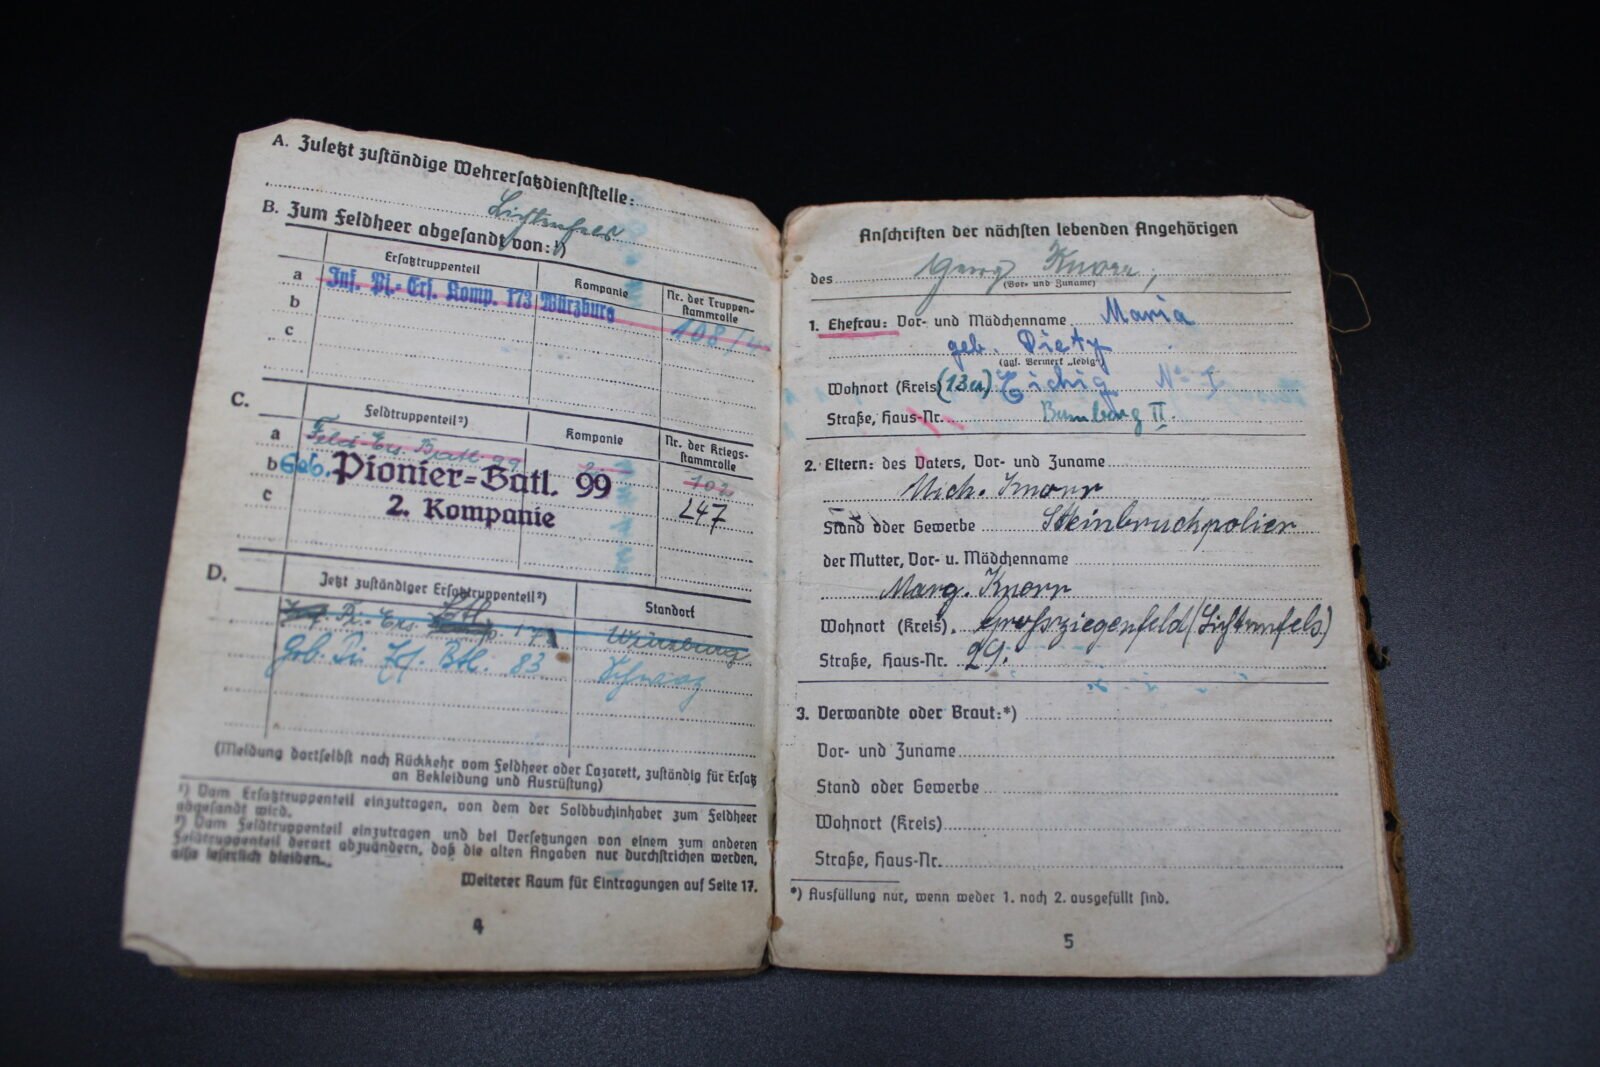 A. Zuletzt zuständige Wehrersatzdienststelle:
Lichtenfels
B. Zum Feldheer abgesandt von:¹)
Ersatztruppenteil
Kompanie
Nr. der Truppen-
stammrolle
a Inf. Pi.-Ers. Komp. 173 Würzburg 108/4
b
c
C.
Feldtruppenteil²)
Kompanie
Nr. der Kriegs-
stammrolle
a Feld-Ers. Batl 99 102
b Geb. Pionier-Batl. 99
2. Kompanie 247
c
D.
Jetzt zuständiger Ersatztruppenteil²)
Standort
Pi. Ers. 17 Würzburg
Geb. Pi. Btl. 83. Schwaz
(Meldung dortselbst nach Rückkehr vom Feldheer oder Lazarett, zuständig für Ersatz
an Bekleidung und Ausrüstung)
¹) Vom Ersatztruppenteil einzutragen, von dem der Soldbuchinhaber zum Feldheer
abgesandt wird.
²) Vom Feldtruppenteil einzutragen und bei Versetzungen von einem zum anderen
Feldtruppenteil derart abzuändern, daß die alten Angaben nur durchstrichen werden,
also leserlich bleiben.
Weiterer Raum für Eintragungen auf Seite 17.
4
Anschriften der nächsten lebenden Angehörigen
des Georg Knorr,
(Vor- und Zuname)
1. Ehefrau: Vor- und Mädchenname Maria
geb. Dietz
(ggf. Vermerk „ledig")
Wohnort (Kreis) (13a) Eichig No
Straße, Haus-Nr. Bamberg II.
2. Eltern: des Vaters, Vor- und Zuname
Mich. Knorr
Stand oder Gewerbe Steinbruchpolier
der Mutter, Vor- u. Mädchenname
Marg. Knorr
Wohnort (Kreis) Großziegenfeld (Lichtenfels)
Straße, Haus-Nr. 29.
3. Verwandte oder Braut:*)
Vor- und Zuname
Stand oder Gewerbe
Wohnort (Kreis)
Straße, Haus-Nr.
*) Ausfüllung nur, wenn weder 1. noch 2. ausgefüllt sind.
5